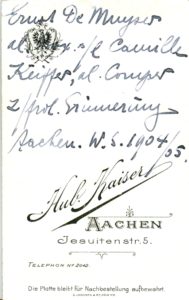 Ernst De Muyser
al. x. s/l Camille
Keiffer, al. Comper
z/frdl. Erinnerung
Aachen. W. S. 1904/05.
Hub. Kaiser
AACHEN
Jesuitenstr. 5.
TELEPHON Nº 2042.
Die Platte bleibt für Nachbestellung aufbewahrt.